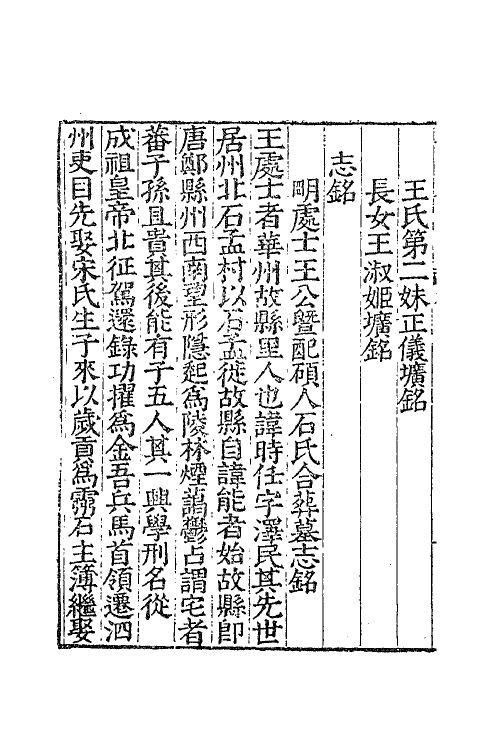 王氏第二妹正儀壙銘
長女王淑姬壙銘
志銘
明處士王公暨配碩人石氏合葬墓志銘
王處士者華州故縣里人也諱時任字澤民其先世
居州北石孟村以石孟徙故縣自諱能者始故縣即
唐鄭縣州西南望形隱起為陵林煙藹鬱占謂宅者
蕃子孫且貴其後能有子五人其一興學刑名從
成祖皇帝北征駕還錄功擢為金吾兵馬首領遷泗
州吏目先娶宋氏生子來以歲貢為霛石主簿繼娶